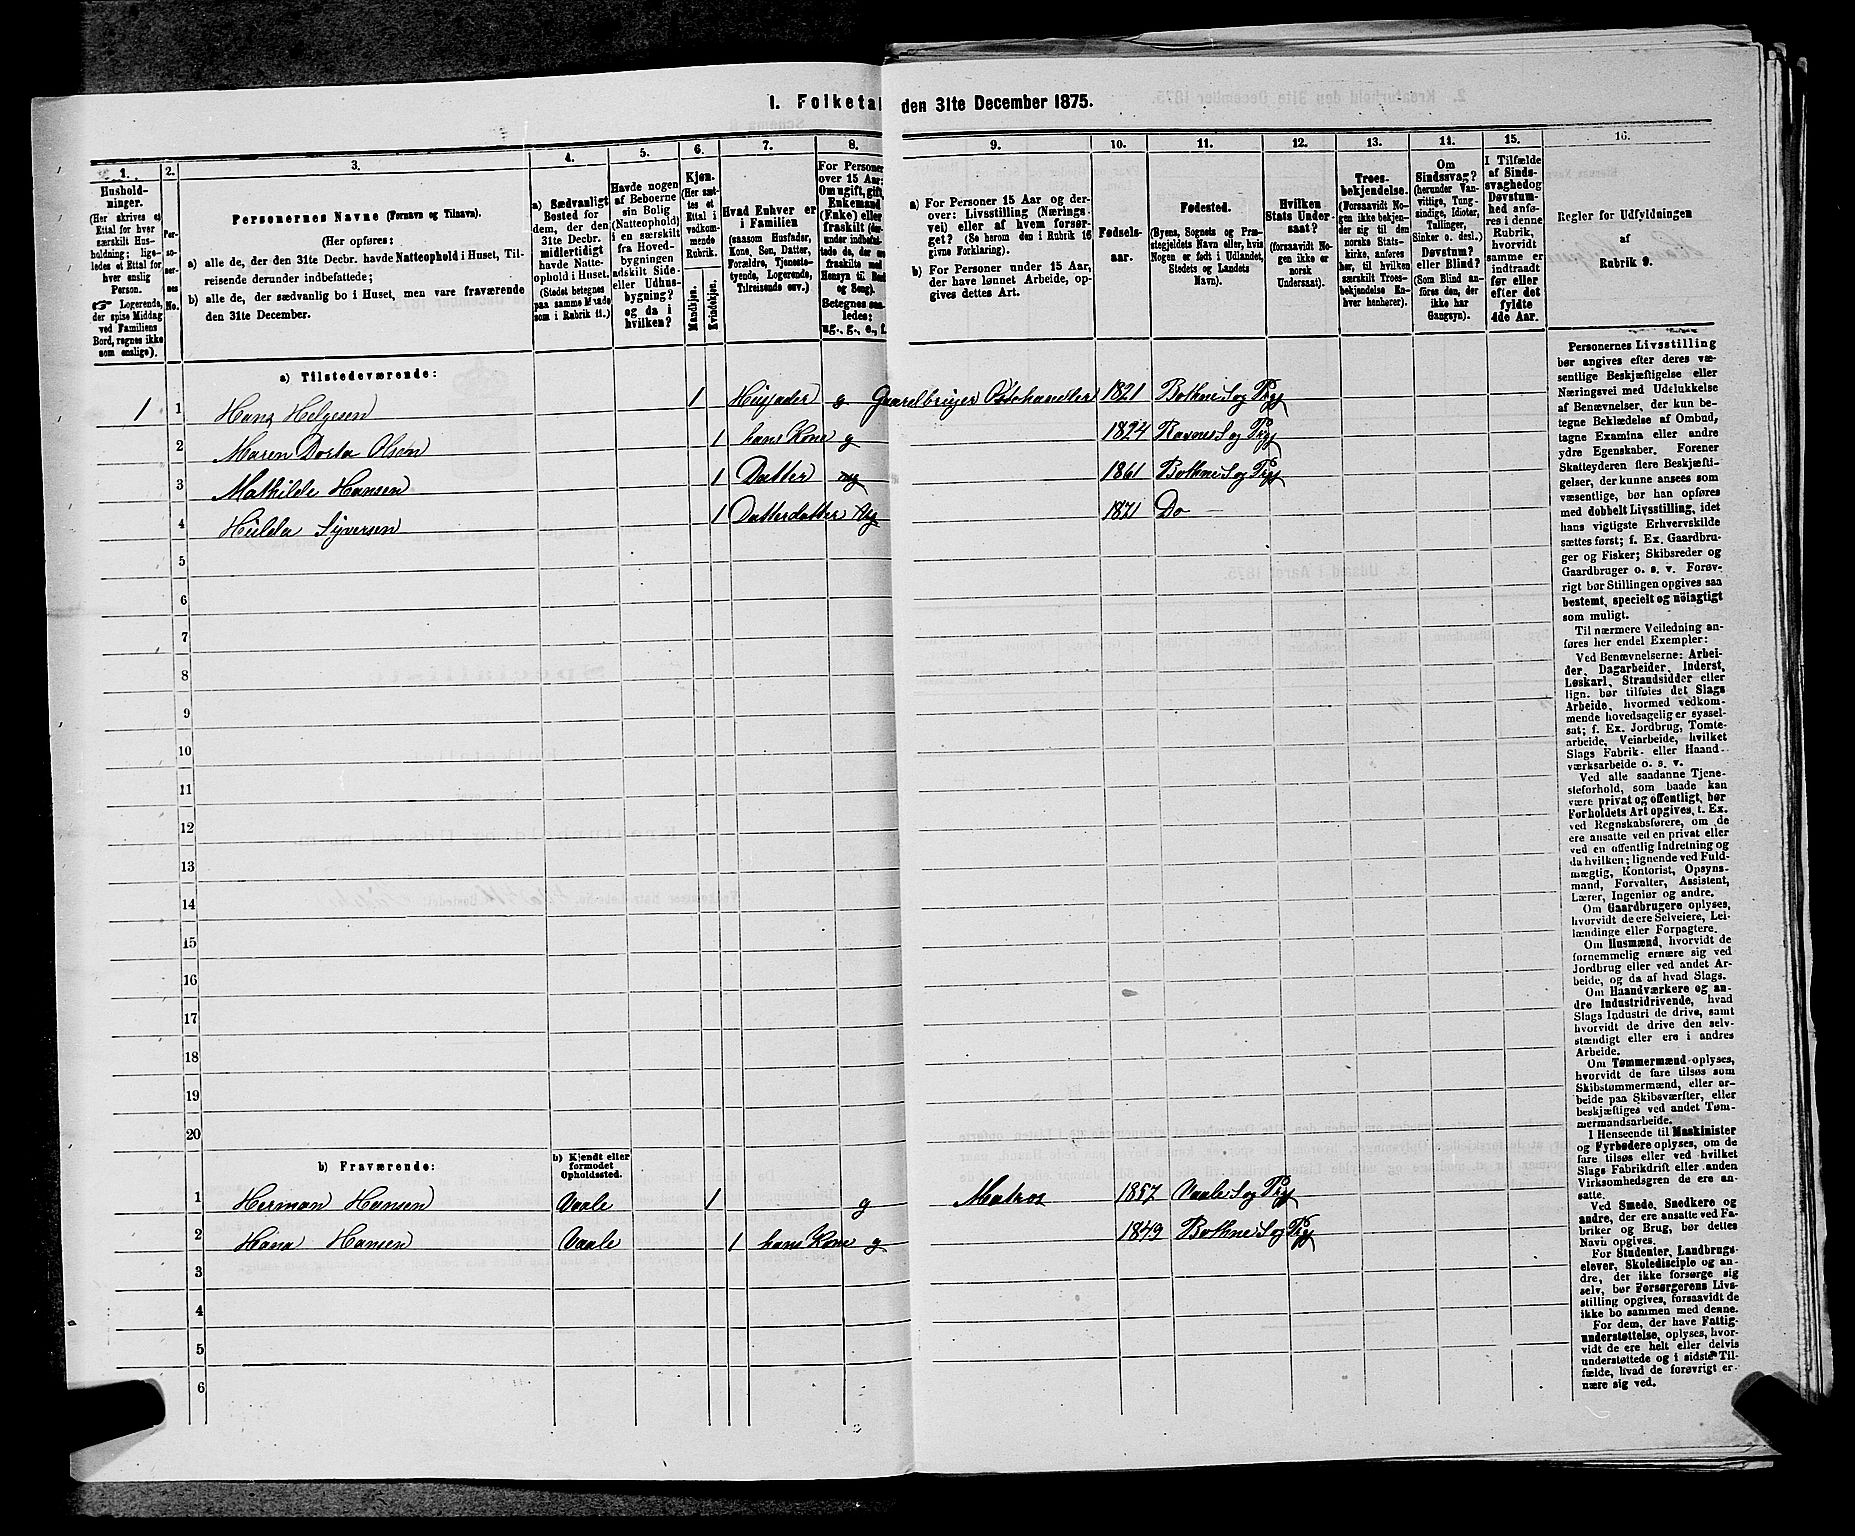 I. Folketal den 31te December 1875.
1.
Hushold-
ninger.
(Her skrives et
Ettal for hver
særskilt Hus-
holdning; lige-
ledes et Ettal for
hver enslig
Person.
☞ Logerende,
der spise Middag
ved Familiens
Bord, regnes ikke
som enslige).
2.
Per-
so-
ner-
nes
No.
3.
Personernes Navne (Fornavn og Tilnavn).
(Her opføres:
a) alle de, der den 31te Decbr. havde Natteophold i Huset, Til-
reisende derunder indbefattede;
b) alle de, der sædvanlig bo i Huset, men vare fraværende
den 31te December.
4.
a) Sædvanligt
Bosted for
dem, der den
31te Decbr.
midlertidigt
havde Natte-
ophold i Huset.
(Stedet betegnes
paa samme Maade
som i Rubrik 11.)
5.
Havde nogen
af Beboerne
sin Bolig
(Natteophold)
i en særskilt
fra Hoved-
bygningen
adskilt Side-
eller Udhus-
bygning?
og da i
hvilken?
6.
Kjøn.
(Her sæt-
tes et
Ettal i
vedkom-
mende
Rubrik.
Mandkjøn.
Kvindekjøn.
7.
Hvad Enhver er
i Familien
(saasom Husfader,
Kone, Søn, Datter,
Forældre, Tjeneste-
tyende, Logerende,
Tilreisende osv.)
8.
For Personer
over 15 Aar:
Om ugift, gift,
Enkemand
(Enke) eller
fraskilt (der-
under indbefat-
tede de, der ere
fraskilte med
Hensyn til Bord
og Seng).
Betegnes saa-
ledes:
ug., g., e., f.
9.
a) For Personer 15 Aar og der-
over: Livsstilling (Nærings-
vei) eller af hvem forsør-
get? (Se herom den i Rubrik 16
givne Forklaring).
b) For Personer under 15 Aar,
der have lønnet Arbeide, op-
gives dettes Art.
10.
Fødsels-
aar.
11.
Fødested.
(Byens, Sognets og Præ-
stegjeldets Navn eller, hvis
Nogen er født i Udlandet,
Stedets og Landets
Navn).
12.
Hvilken
Stats Under-
saat?
(forsaavidt No-
gen ikke er
norsk
Undersaat).
13.
Troes-
bekjendelse.
(Forsaavidt No-
gen ikke bekjen-
der sig til den
norske Stats-
kirke, anføres
her, til hvilken
særskilt Troes-
bekjendelse En-
hver henhører).
14.
Om
Sindssvag?
(herunder Van-
vittige, Tung-
sindige, Idioter,
Tallinger,
Sinker o. desl.)
Døvstum?
eller Blind?
(Som Blind an-
føres den, der
ikke har
Gangsyn).
15.
I Tilfælde
af Sinds-
svaghed og
Døvstum-
hed anfø-
res i denne
Rubrik,
hvorvidt
samme er
indtraadt
før eller
efter det
fyldte
4de Aar.
16.
Regler for Udfyldningen
af
Rubrik 9.
a) Tilstedeværende:
1 1 Hans Helgesen 1 Husfader g Gaardbruger Ostehandler 1821 Bothne S og Pgj
2 Maren Dorta Olsen 1 hans Kone g 1824 Ravnes S og Pgj
3 Mathilde Hansen 1 Datter ug 1861 Bothne S og Pgj
4 Hulda Syversen 1 Datterdatter Ug 1871 Do
5
6
7
8
9
10
11
12
13
14
15
16
17
18
19
20
b) Fraværende:
b) Kjendt eller
formodet
Opholdssted.
1 Herman Hansen Vaale 1 g Matros 1857 Vaale S og Pgj
2 Hana Hansen Vaale 1 hans Kone g 1849 Bothne S og Pgj
3
4
5
6
Personernes Livsstilling
bør angives efter deres væ-
sentlige Beskjæftigelse eller
Næringsvei med Udelukkelse
af Benævnelser, der kun be-
tegne Beklædelse af Ombud,
tagne Examina eller andre
ydre Egenskaber. Forener
Skatteyderen flere Beskjæfti-
gelser, der kunne ansees som
væsentlige, bør han opføres
med dobbelt Livsstilling, idet
hans vigtigste Erhvervskilde
sættes først; f. Ex. Gaardbru-
ger og Fisker; Skibsreder og
Gaardbruger o. s. v. Forøv-
rigt bør Stillingen opgives saa
bestemt, specielt og nöiagtigt
som muligt.
Til nærmere Veiledning an-
føres her endel Exempler:
Ved Benævnelserne: Arbei-
der, Dagarbeider, Inderst,
Løskarl, Strandsidder eller
lign. bør tilføies det Slags
Arbeide, hvormed vedkom-
mende hovedsagelig er syssel-
sat; f. Ex. Jordbrug, Tomte-
arbeide, Veiarbeide, hvilket
Slags Fabrik- eller Haand-
værksarbeide o. s. v.
Ved alle saadanne Tjene-
steforhold, som baade kan
være privat og offentligt, bør
Forholdets Art opgives, t. Ex.
ved Regnskabsførere, om de
ere ansatte ved en privat eller
ved en offentlig Indretning og
da hvilken; lignende ved Fuld-
mægtig, Kontorist, Opsyns-
mand, Forvalter, Assistent,
Lærer, Ingeniør og andre.
Om Gaardbrugere oplyses,
hvorvidt de ere Selveiere, Lei-
lændinge eller Forpagtere.
Om Husmænd, hvorvidt de
fornemmelig ernære sig ved
Jordbrug eller ved andet Ar-
beide, og da af hvad Slags.
Om Haandværkere og an-
dre Industridrivende, hvad
Slags Industri de drive, samt
hvorvidt de drive den selv-
stændigt eller ere i andres
Arbeide.
Om Tømmermænd oplyses,
hvorvidt de fare tilsøs som
Skibstømmermænd, eller ar-
beide paa Skibsværfter, eller
beskjæftiges ved andet Tøm-
mermandsarbeide.
I Henseende til Maskinister
og Fyrbødere oplyses, om de
fare tilsøs eller ved hvilket
Slags Fabrikdrift eller anden
Virksomhedsgren de ere an-
satte.
Ved Smede, Snedkere og
andre, der ere ansatte ved Fa-
briker og Brug, bør dettes
Navn opgives.
For Studenter, Landbrugs-
elever, Skoledisciple og an-
dre, der ikke forsørge sig
selv, bør Forsørgerens Livs-
stilling opgives, forsaavidt de
ikke bo sammen med denne.
For dem, der have Fattig-
understøttelse, oplyses, hvor-
vidt de ere helt eller delvis
understøttede og i sidste Til-
fælde, hvad de forøvrigt er-
nære sig ved.